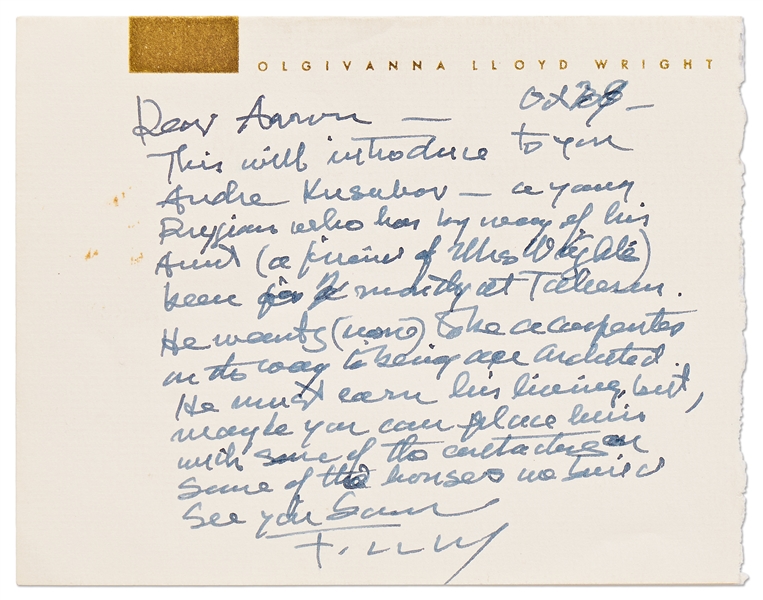 OLGIVANNA LLOYD WRIGHT
Dear Aaron — Oct
This will introduce to you
Andre Kusubov — a young
Russian who has by way of his
Aunt (a friend of Mrs Wright's)
been months at Taliesin.
He wants (now) to be a carpenter
on the way to being an architect.
He must earn his living, but,
maybe you can place him
with some of the contractors on
some of the houses we build
See you soon
F.LL.W